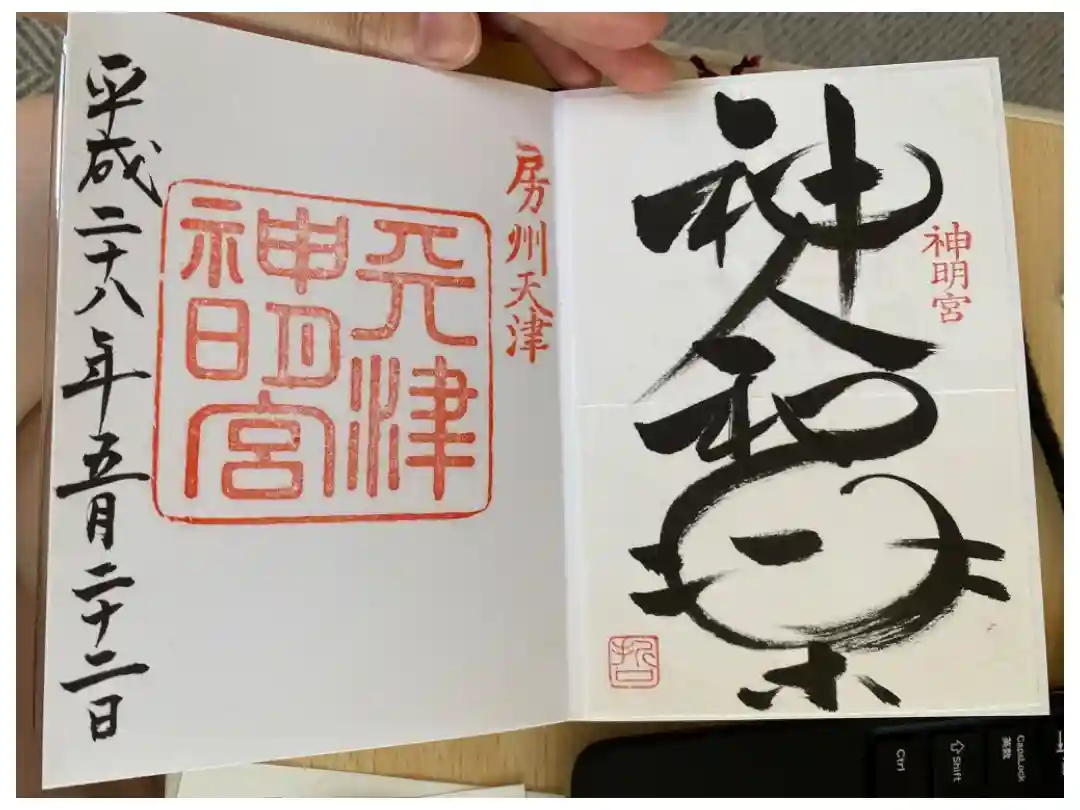 神明宮
神人和楽
哲
房州天津
天津
神明宮
平成二十八年五月二十二日
Ctrl
⇧Shift
CapsLock
英数